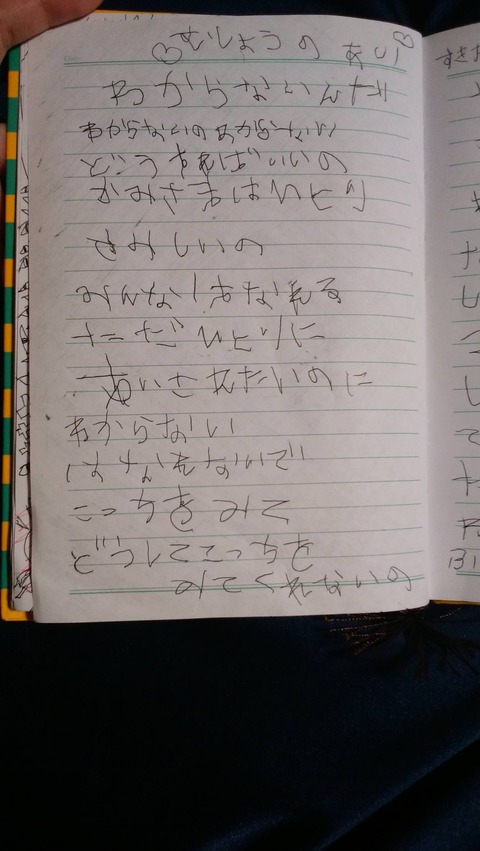 ♡むしょうのあい♡
わからないんだ
わからないのわからない
どうすればいいの
かみさまはひとり
さみしいの
みんなはなれる
ただひとりに
あいされたいのに
わからない
はなれないで
こっちをみて
どうしてこっちを
みてくれないの